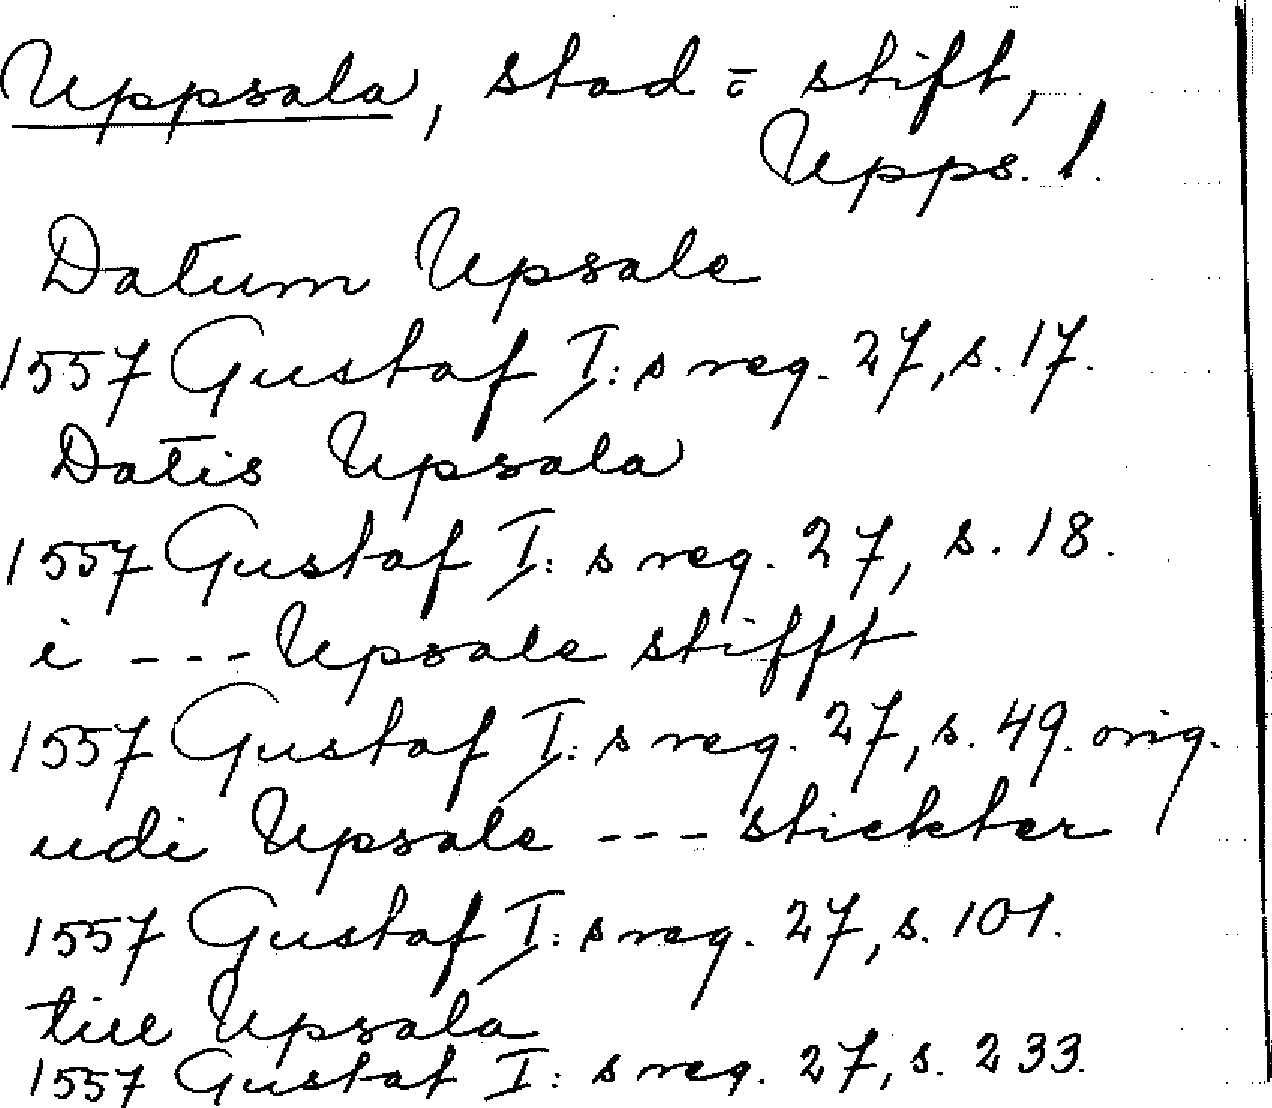 Uppsala, stad o stift,
Upps. l.
Datum Upsale
1557 Gustaf I:s reg. 27, s. 17.
Datis Upsala
1557 Gustaf I:s reg. 27, s. 18.
i --- Upsale stifft
1557 Gustaf I:s reg. 27, s. 49. orig.
udi Upsale --- stickter
1557 Gustaf I:s reg. 27, s. 101.
till Upsala
1557 Gustaf I:s reg. 27, s. 233.